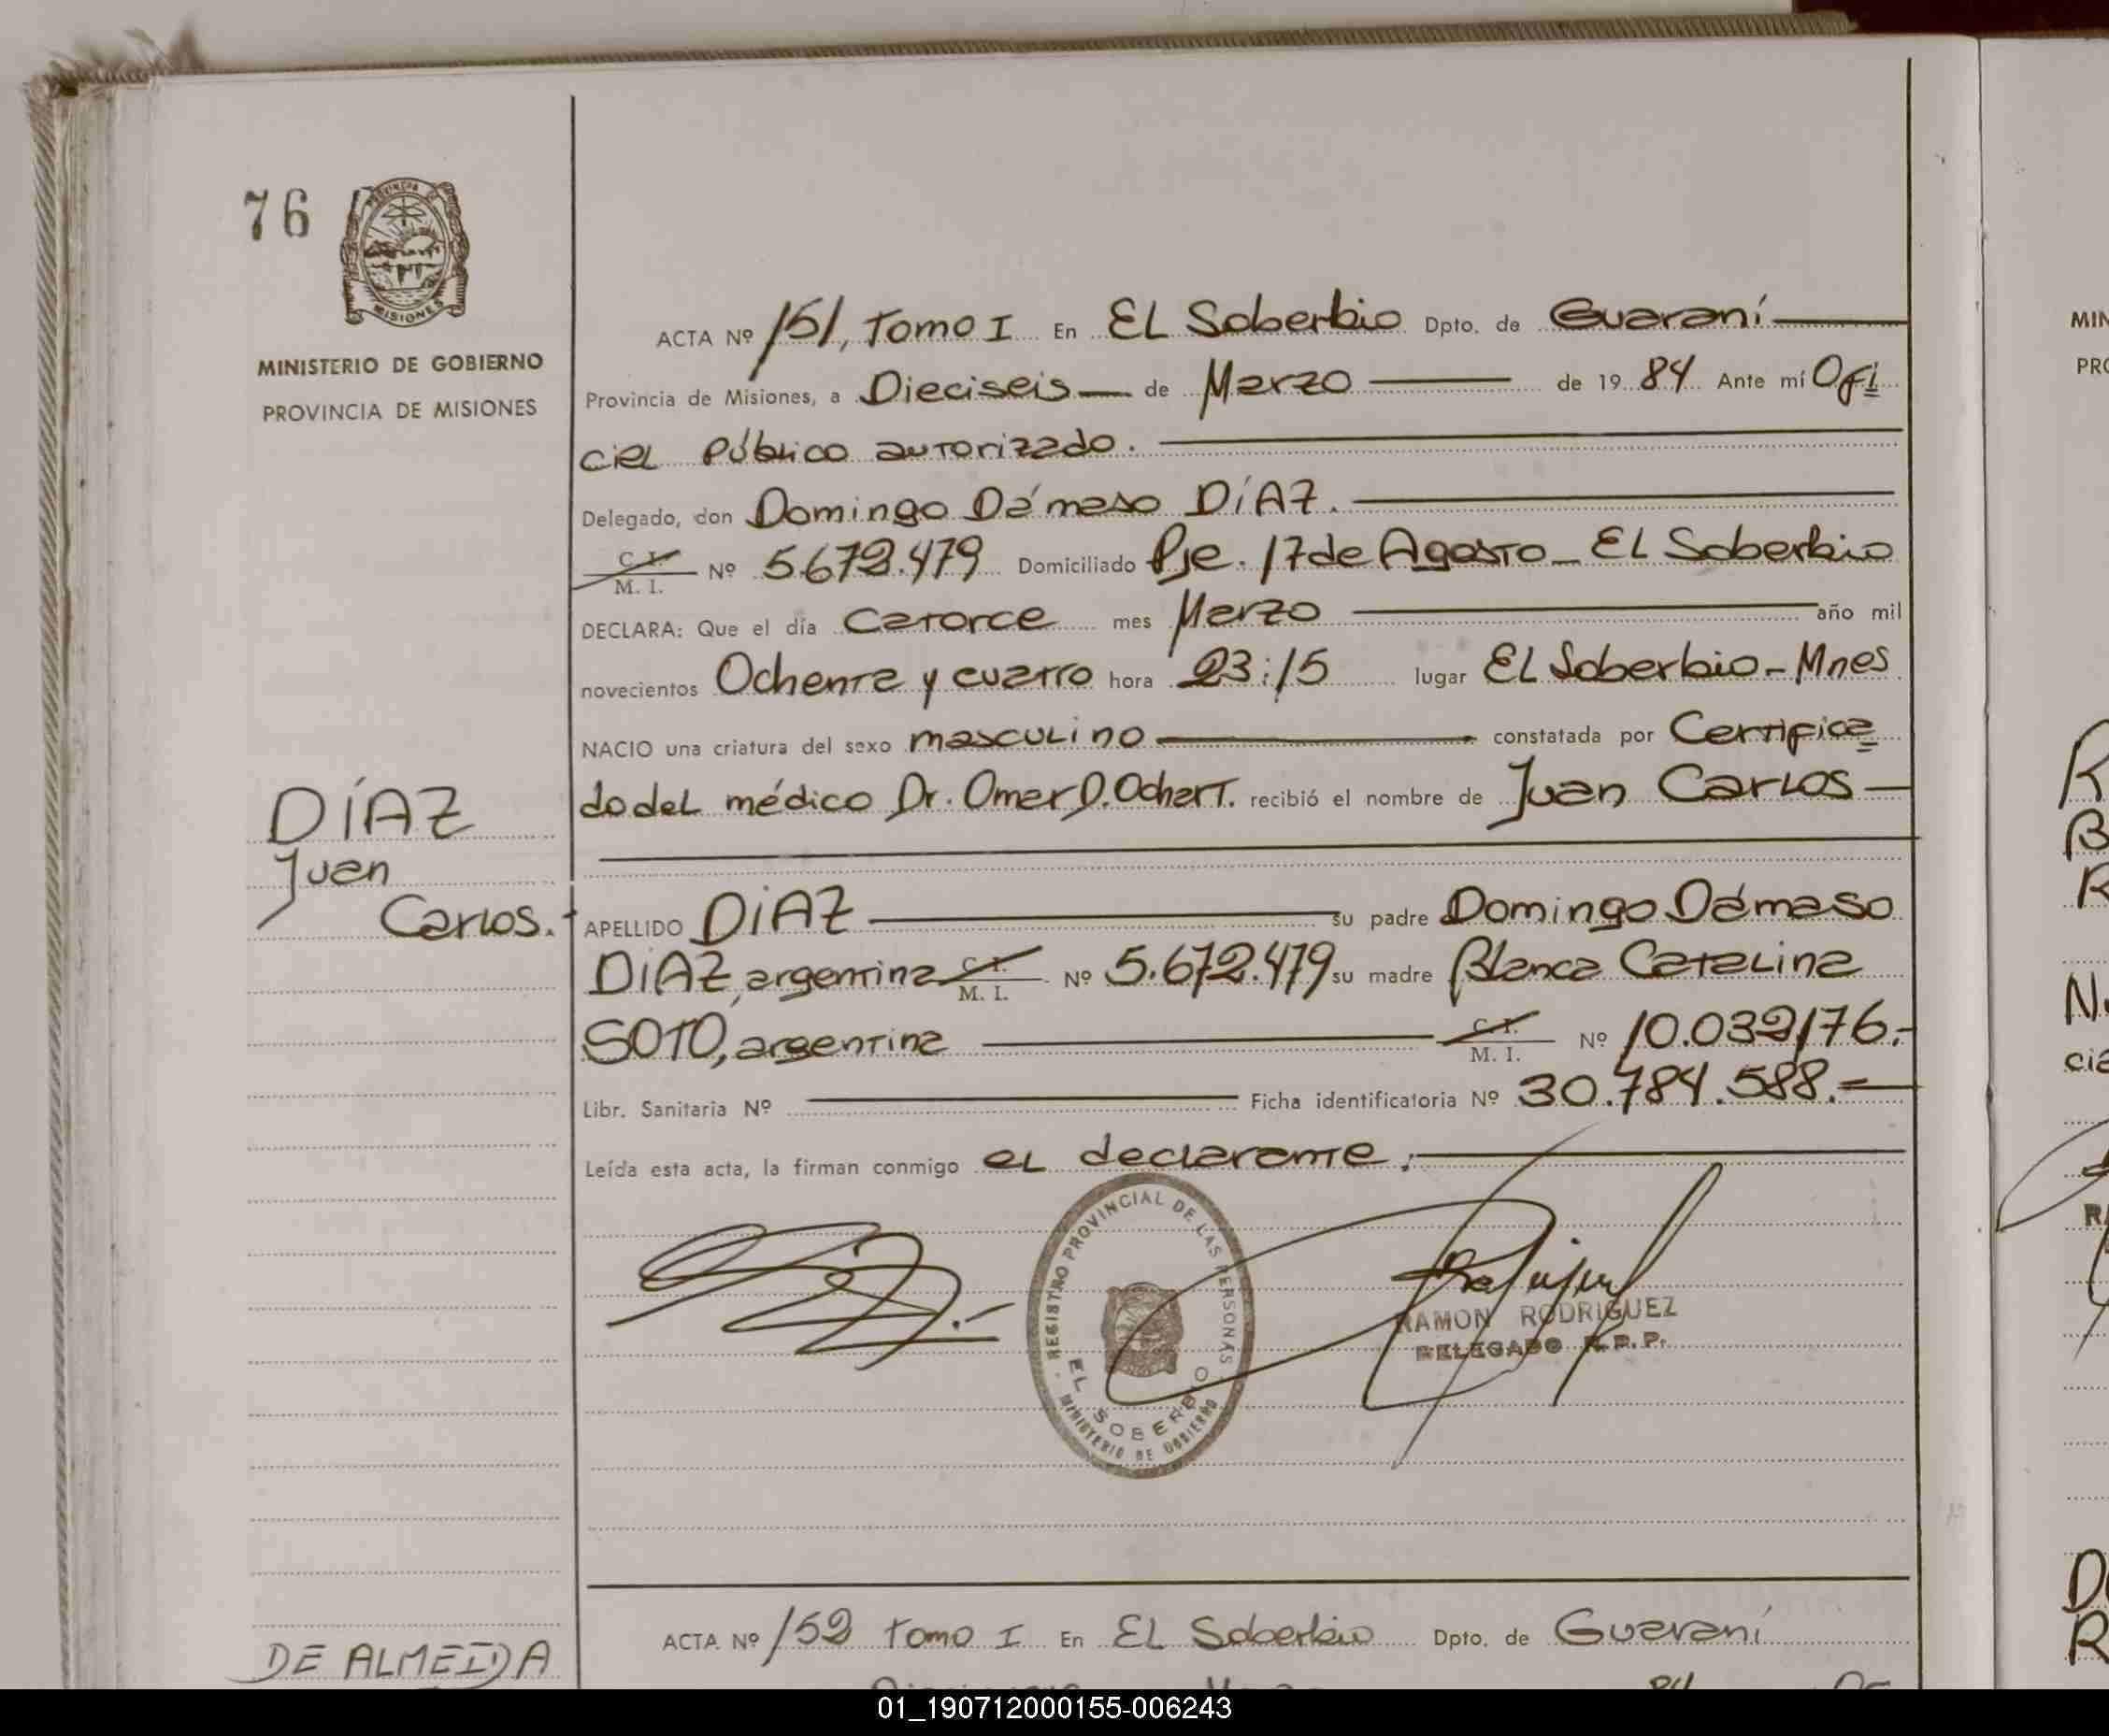 76
PROVINCIA DE
MISIONES
MINISTERIO DE GOBIERNO
PROVINCIA DE MISIONES
ACTA Nº 151, Tomo I En EL Soberbio Dpto. de Guaraní
Provincia de Misiones, a Dieciseis de Marzo de 19 84 Ante mí Ofi
cial Público autorizado.
Delegado, don Domingo Dámaso DÍAZ.
C. I. / M. I. Nº 5.672.479 Domiciliado Pje. 17 de Agosto - EL Soberbio
DECLARA: Que el día Catorce mes Marzo año mil
novecientos Ochenta y cuatro hora 23:15 lugar EL Soberbio - Mnes
NACIO una criatura del sexo masculino constatada por Certifica
do del médico Dr. Omar D. Ochart. recibió el nombre de Juan Carlos
DÍAZ
Juan
Carlos.
APELLIDO DÍAZ su padre Domingo Dámaso
DÍAZ, argentina C. I. / M. I. Nº 5.672.479 su madre Blanca Catalina
SOTO, argentina C. I. / M. I. Nº 10.032176.-
Libr. Sanitaria Nº Ficha identificatoria Nº 30.784.588.-
Leída esta acta, la firman conmigo el declarante.
REGISTRO PROVINCIAL DE LAS PERSONAS
EL SOBERBIO
MINISTERIO DE GOBIERNO
RAMON RODRIGUEZ
DELEGADO R.P.P.
ACTA Nº 152 Tomo I En EL Soberbio Dpto. de Guaraní
DE ALMEIDA
MIN
PRO
01_190712000155-006243